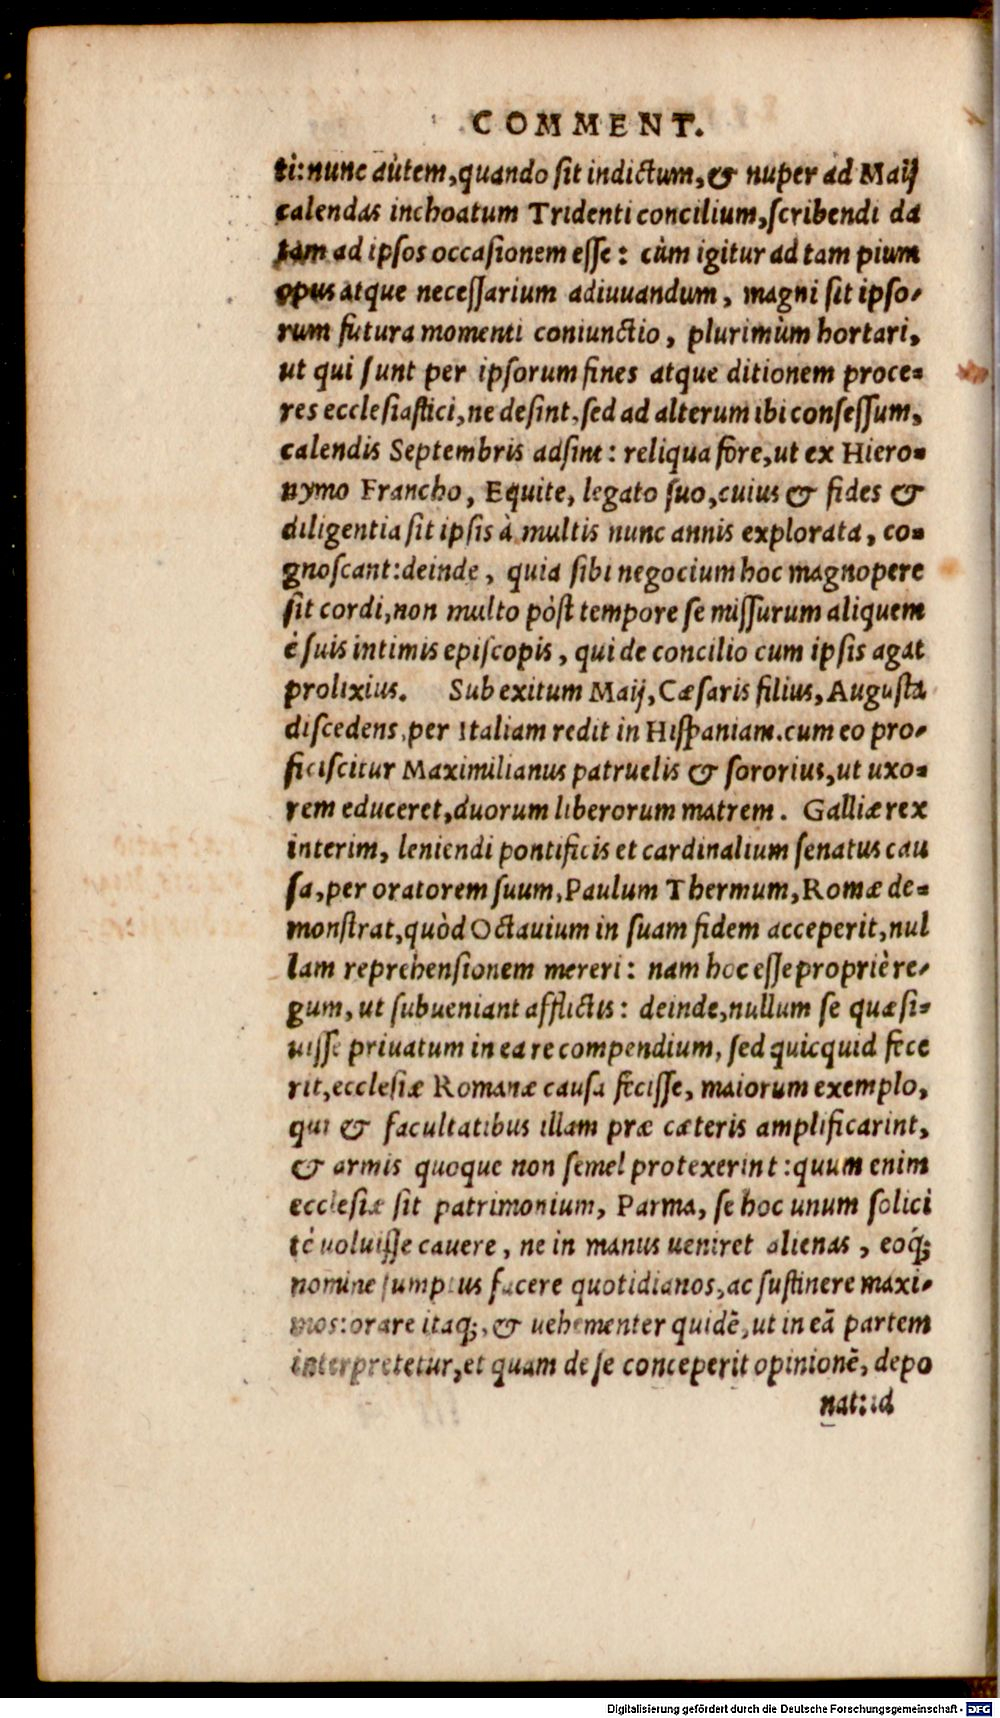 COMMENT.
ti: nunc aùtem, quando sit indictum, & nuper ad Maij
calendas inchoatum Tridenti concilium, scribendi da
tam ad ipsos occasionem esse: cùm igitur ad tam pium
opus atque necessarium adiuuandum, magni sit ipso-
rum futura momenti coniunctio, plurimùm hortari,
ut qui sunt per ipsorum fines atque ditionem proce-
res ecclesiastici, ne desint, sed ad alterum ibi consessum,
calendis Septembris adsint: reliqua fore, ut ex Hiero-
nymo Francho, Equite, legato suo, cuius & fides &
diligentia sit ipsis à multis nunc annis explorata, co-
gnoscant: deinde, quia sibi negocium hoc magnopere
sit cordi, non multo pòst tempore se missurum aliquem
è suis intimis episcopis, qui de concilio cum ipsis agat
prolixius. Sub exitum Maij, Cæsaris filius, Augusta
discedens, per Italiam redit in Hispaniam. cum eo pro-
ficiscitur Maximilianus patruelis & sororius, ut uxo-
rem educeret, duorum liberorum matrem. Galliæ rex
interim, leniendi pontificis et cardinalium senatus cau
sa, per oratorem suum, Paulum Thermum, Romæ de-
monstrat, quòd Octauium in suam fidem acceperit, nul
lam reprehensionem mereri: nam hoc esse propriè re-
gum, ut subueniant afflictis: deinde, nullum se quæsi-
uisse priuatum in ea re compendium, sed quicquid fece
rit, ecclesiæ Romanæ causa fecisse, maiorum exemplo,
qui & facultatibus illam præ cæteris amplificarint,
& armis quoque non semel protexerint: quum enim
ecclesiæ sit patrimonium, Parma, se hoc unum solici
tè uoluisse cauere, ne in manus ueniret alienas, eoq́;
nomine sumptus facere quotidianos, ac sustinere maxi-
mos: orare itaq;, & uehementer quidē, ut in eā partem
interpretetur, et quam de se conceperit opinionē, depo
nat: id
Digitalisierung gefördert durch die Deutsche Forschungsgemeinschaft - DFG